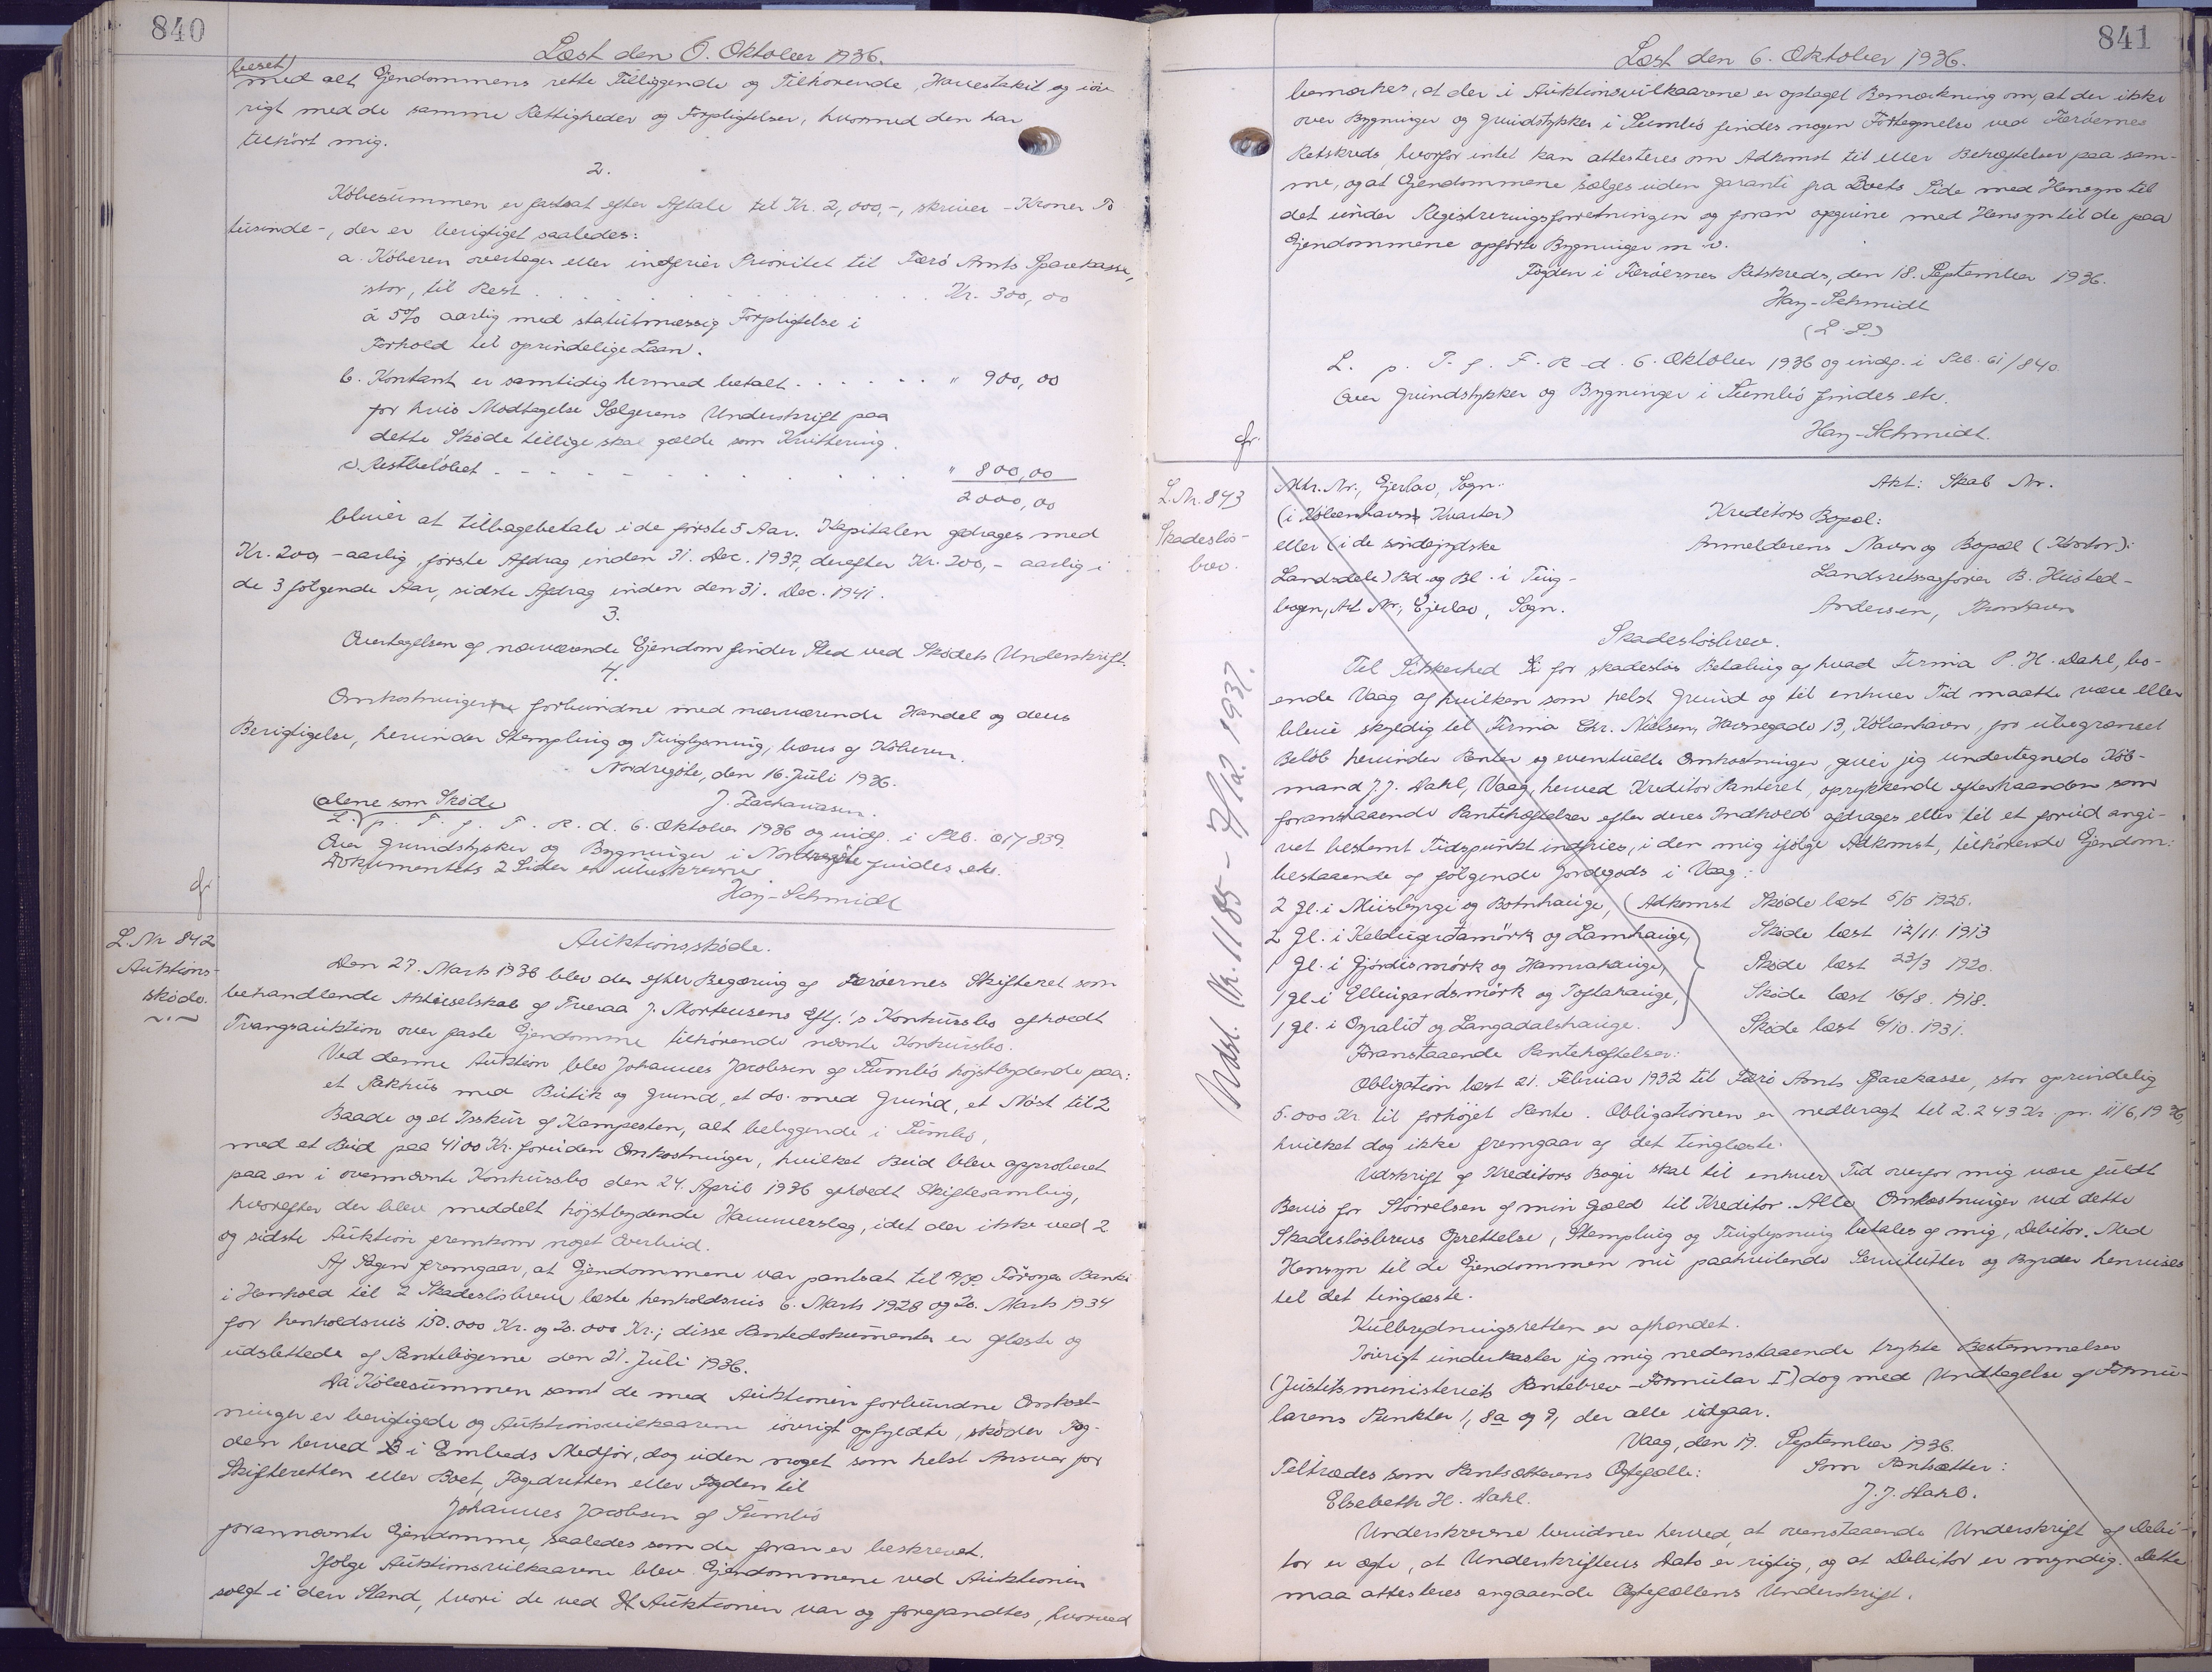 840
Læst den 6. Oktober 1936.
beset)
med alt Ejendommens rette Tilliggende og Tilhørende, Havestakit og iöv-
rigt med de samme Rettigheder og Forpligtelser, hvormed den har
tilhört mig.
2.
Köbesummen er fastsat efter Aftale til Kr. 2,000,-, skriver - Kroner To
tusinde -, der er berigtiget saaledes:
a. Köberen overtager eller indfrier Prioritet til Færö Amts Sparekasse,
stor, til Rest . . . . . . . . . Kr. 300,00
á 5% aarlig med statutmæssig Forpligtelse i
Forhold til oprindelige Laan.
b. Kontant er samtidig hermed betalt . . . . . . " 900,00
for hvis Modtagelse Sælgerens Underskrift paa
dette Sköde tillige skal gælde som Kvittering.
c. Restbelöbet - - - - - - . . . . " 800,00
2000,00
bliver at tilbagebetale i de förste 5 Aar. Kapitalen afdrages med
Kr. 200,- aarlig, förste Afdrag inden 31. Dec. 1937, derefter Kr. 200,- aarlig i
de 3 fölgende Aar, sidste Afdrag inden den 31. Dec. 1941.
3.
Overtagelsen af nærværende Ejendom finder Sted ved Sködets Underskrift.
4.
Omkostningerne forbundne med nærværende Handel og dens
Berigtigelse, herunder Stempling og Tinglysning, bæres af Köberen.
Nordregöte, den 16. Juli 1936.
(alene som Sköde J. Zachariasen.
L. p. T. f. F. R. d. 6. Oktober 1936 og indf. i Skb. 61/839.
Over Grundstykker og Bygninger i Nordregöte findes etc.
Dokumentets 2 Sider er
Hay-Schmidt
L. Nr 842
Auktions-
sköde.
Auktionssköde.
Den 27. Marts 1936 blev der efter Begæring af Færöernes Skifteret som
behandlende Aktieselskab af Tveraa J. Mortensens Eftf.'s Konkursbo afholdt
Tvangsauktion over faste Ejendomme tilhörende nævnte Konkursbo.
Ved denne Auktion blev Johannes Jacobsen af Sumbö höjstbydende paa:
et Pakhus med Butik og Grund, et do. med Grund, et Nöst til 2
Baade og et Isskur af Kampesten, alt beliggende i Sumbö,
med et Bud paa 4100 Kr. foruden Omkostninger, hvilket Bud blev approberet
paa en i ovennævnte Konkursbo den 24. April 1936 afholdt Skiftesamling,
hvorefter der blev meddelt höjstbydende Hammerslag, idet der ikke ved 2
og sidste Auktion fremkom noget Overbud.
Af Sagen fremgaar, at Ejendommene var pantsat til A/S. Föroya Banki
i Henhold til 2 Skadeslösbreve læste henholdsvis 6. Marts 1928 og 20. Marts 1934
for henholdsvis 150.000 Kr. og 20.000 Kr.; disse Pantedokumenter er aflæste og
udslettede af Pantebögerne den 21. Juli 1936.
Da Köbesummen samt de med Auktionen forbundne Omkost-
ninger er berigtigede og Auktionsvilkaarene iövrigt opfyldte, sköder Fog-
den herved i Embeds Medför, dog uden noget som helst Ansvar for
Skifteretten eller Boet, Fogedretten eller Fogden til
Johannes Jacobsen af Sumbö
forannævnte Ejendomme, saaledes som de foran er beskrevet.
Ifölge Auktionsvilkaarene blev Ejendommene ved Auktionen
solgt i den Stand, hvori de ved Auktionen var og forefandtes, hvorved
841
Læst den 6. Oktober 1936.
bemærkes, at der i Auktionsvilkaarene er optaget Bemærkning om, at der ikke
over Bygninger og Grundstykker i Sumbö findes nogen Fortegnelse ved Færöernes
Retskreds, hvorfor intet kan attesteres om Adkomst til eller Behæftelser paa sam-
me, og at Ejendommene sælges uden Garanti fra Boets Side med Hensyn til
det under Registreringsforretningen og foran opgivne med Hensyn til de paa
Ejendommene opförte Bygninger m.v.
Fogden i Færöernes Retskreds, den 18. September 1936.
Hay-Schmidt
(L. S.)
L. p. T. f. F. R. d. 6. Oktober 1936 og indf. i Skb. 61/840.
Over Grundstykker og Bygninger i Sumbö findes etc.
Hay-Schmidt.
L. Nr. 843
Skadeslös-
brev.
Udsl. Nr. 1185 - 7/12. 1937.
Mtr. Nr., Ejerlav, Sogn.
(i Köbenhavns Kvarter)
eller (i de sönderjydske
Landsdele) Bd. og Bl. i Ting-
bogen, Art Nr., Ejerlav, Sogn.
Akt: Skab Nr.
Kreditors Bopæl:
Anmelderens Navn og Bopæl (Kontor):
Landsretssagförer B. Husted-
Andersen, Thorshavn
Skadeslösbrev.
Til Sikkerhed for skadeslös Betaling af hvad Firma P. H. Dahl, bo-
ende Vaag af hvilken som helst Grund og til enhver Tid maatte være eller
blive skyldig til Firma Chr. Nielsen, Havnegade 13, Köbenhavn, for ubegrænset
Belöb herunder Renter og eventuelle Omkostninger, giver jeg undertegnede Köb-
mand J. J. Dahl, Vaag, herved Kreditor Panteret, oprykkende efterhaanden som
foranstaaende Pantehæftelser efter deres Indhold afdrages eller til et forud angi-
vet bestemt Tidspunkt indfries, i den mig ifölge Adkomst, tilhörende Ejendom:
bestaaende af fölgende Jordegods i Vaag:
2 Gl. i Miisbyrgi og Botnhauge, (Adkomst Sköde læst 5/5 1925.
2 Gl. i Keldugerdamörk og Lamhauge, Sköde læst 12/11 1913
1 Gl. i Gjördismörk og Hamrahauge, Sköde læst 23/3 1920.
1 Gl. i Ellingardsmörk og Toftahauge, Sköde læst 16/8. 1918.
1 Gl. i Ograliđ og Langadalshauge. Sköde læst 6/10. 1931.
Foranstaaende Pantehæftelser:
Obligation læst 21. Februar 1932 til Færö Amts Sparekasse, stor oprindelig
5.000 Kr. til forhöjet Rente. Obligationen er nedbragt til 2.243 Kr. pr. 11/6, 1936,
hvilket dog ikke fremgaar af det tinglæste.
Udskrift af Kreditors Böger skal til enhver Tid overfor mig være fuldt
Bevis for Störrelsen af min Gæld til Kreditor. Alle Omkostninger ved dette
Skadeslösbrevs Oprettelse, Stempling og Tinglysning betales af mig, Debitor. Med
Hensyn til de Ejendommen nu paahvilende Servitutter og Byrder henvises
til det tinglæste.
Kulbrydningsretten er afhændet.
Iövrigt underkaster jeg mig nedenstaaende trykte Bestemmelser
(Justitsministeriets Pantebrev - Formular I) dog med Undtagelse af Formu-
larens Punkter 1, 8a og 9, der alle udgaar.
Vaag, den 19. September 1936.
Tiltrædes som Pantsætterens Ægtefælle: Som Pantsætter:
Elsebeth H. Dahl. J. J. Dahl.
Underskrevne bevidner herved, at ovenstaaende Underskrift af Debi-
tor er ægte, at Underskriftens Dato er rigtig, og at Debitor er myndig. Dette
maa attesteres angaaende Ægtefællens Underskrift.